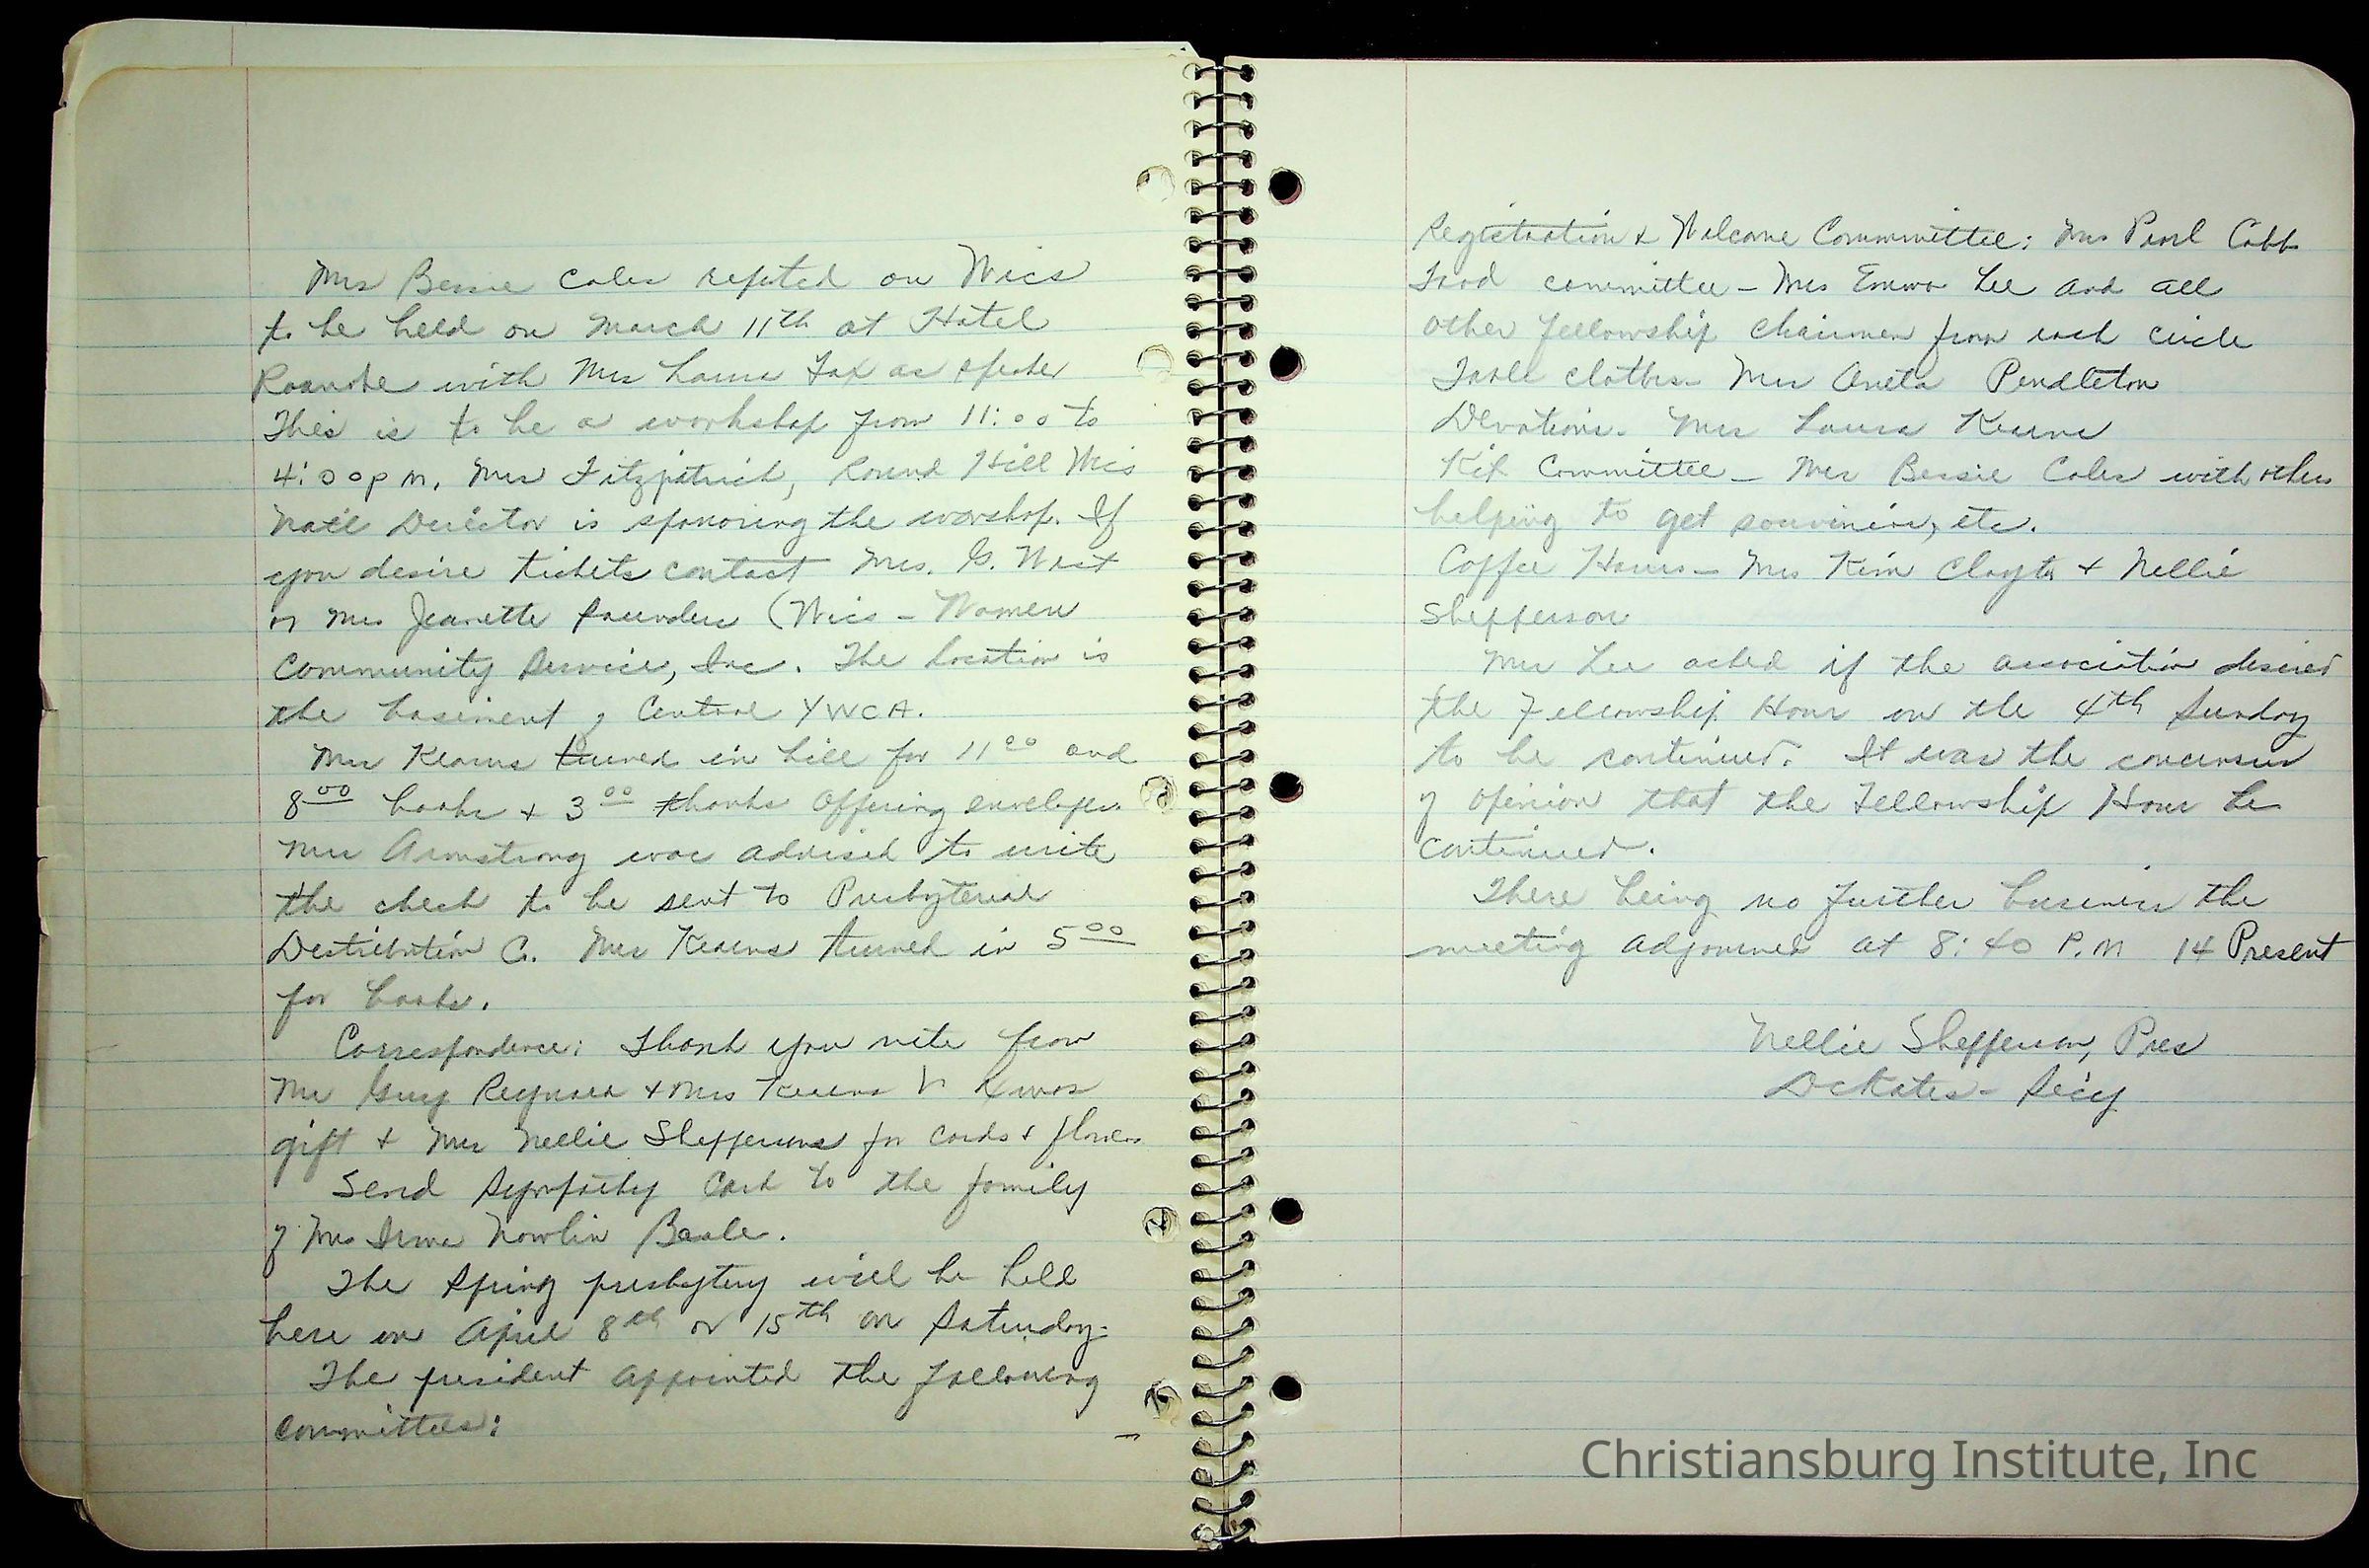 Mrs Bessie Coles repoted on Wics
to be held on March 11th at Hotel
Roanoke with Mrs Laura Fax as speaker
This is to be a workshop from 11:00 to
4:00 pm. Mrs Fitzpatrick, Round Hill Wics
Nat'l Director is sponsoring the worshop. If
you desire tickets contact Mrs. G. West
or Mrs Jeanette Saunders (Wics - Women
Community Service, Inc. The location is
the basement of Central YWCA.
Mrs Kearns turned in bill for 11 00 and
8 00 books + 3 00 thanks offering envelopes.
Mrs Armstrong was advised to write
the check to be sent to Presbyterial
Distribution C. Mrs Kearns turned in 5 00
for books.
Correspondence: Thank you note from
Mr Guy + Mrs Kearns Xmas
gift + Mrs Nellie Shepperson for cards + flowers
Send Sympathy Card to the family
of Mrs Irma Nowlin Beale.
The Spring presbytery will be held
here on April 8th or 15th on Saturday.
The president appointed the following
committees:
Registration + Welcome Committee: Mrs Pearl Cobb
Food committee - Mrs Emma Lee and all
other fellowship chairmen from each circle
Table cloths - Mrs Aneta Pendleton
Devotions - Mrs Laura Kearns
Kit Committee - Mrs Bessie Coles with others
helping to get souviniers, etc.
Coffee Hour - Mrs Kim Claytor + Nellie
Shepperson
Mrs Lee asked if the association desired
the Fellowship Hour on the 4th Sunday
to be continued. It was the concensus
of opinion that the Fellowship Hour be
continued.
There being no further business the
meeting adjourned at 8:40 P.M 14 Present
Nellie Shepperson, Pres
D. Kates - Sec'y
Christiansburg Institute, Inc